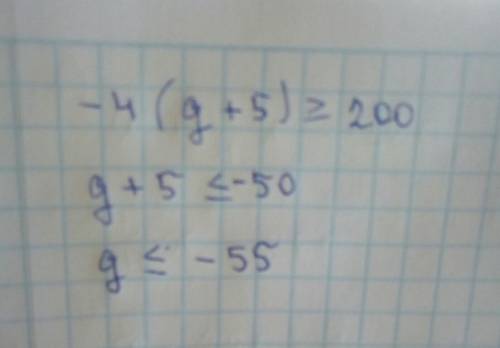 -4(g+5) ≥ 200
g+5 ≤ -50
g ≤ -55